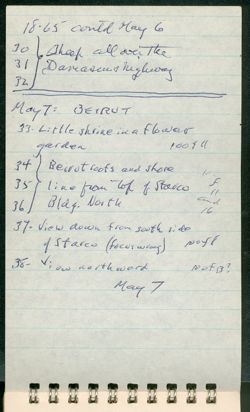 18-65 contd May 6
30 } Sheep all over the
31 } Damascus highway
32 }
May 7: BEIRUT
33- Little shrine in a flower
garden 100 f11
34 } Beirut roofs and shore
35 } line from top of Starco
36 } Bldg. North and 16
37- View down from south side
of Starco (focus wrong) 100 f8
38- View northward
May 7